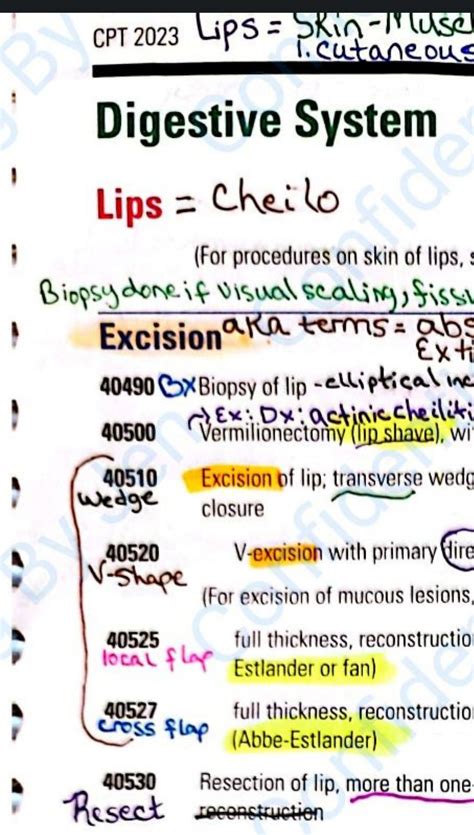 CPT 2023 Lips = Skin-Musc
1. cutaneous
Digestive System
Lips = Cheilo
(For procedures on skin of lips, s
Biopsy done if visual scaling, fissu
Excision aka terms = abs
Exti
40490 BX Biopsy of lip - elliptical inc
→ Ex: Dx: actinic cheiliti
40500 Vermilionectomy (lip shave), wi
40510 Excision of lip; transverse wedg
wedge closure
40520 V-excision with primary dire
V-shape
(For excision of mucous lesions,
40525 full thickness, reconstructio
local flap Estlander or fan)
40527 full thickness, reconstructio
cross flap (Abbe-Estlander)
40530 Resection of lip, more than one-
Resect reconstruction